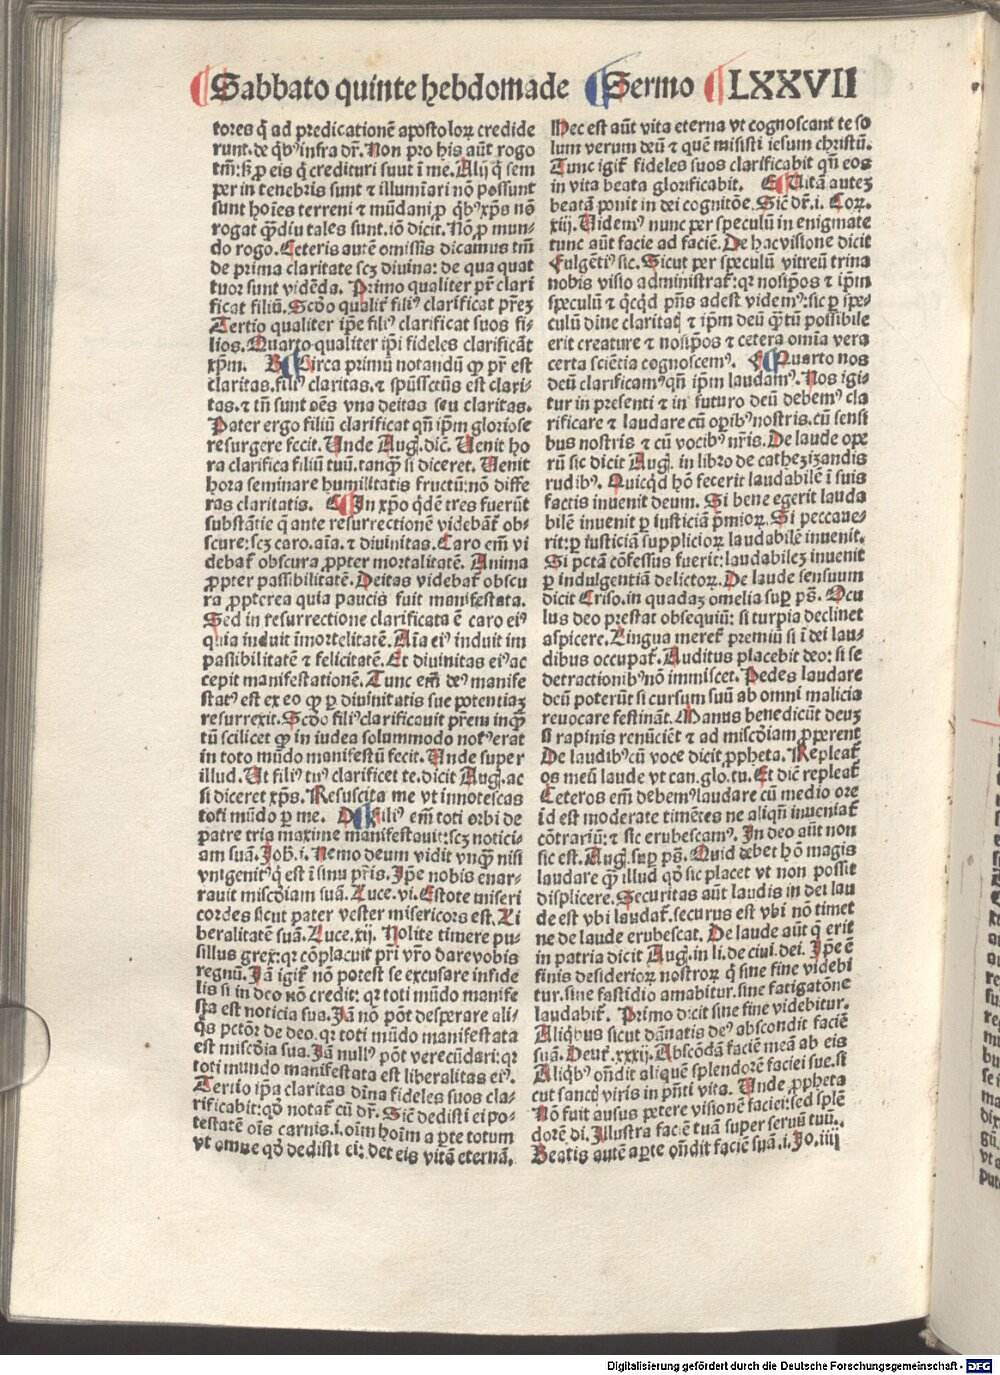 Sabbato quinte hebdomade Sermo LXXVII
tores q̃ ad predicationē apostoloꝝ credide
runt. de qͥbꝰ infra dr̄. Non pro his aūt rogo
tm̄: sꝫ ꝓ eis q̃ credituri suut ī me. Alij q̃ sem
per in tenebris sunt ⁊ illumīari nō possunt
sunt hoīes terreni ⁊ mūdani ꝓ qͥbꝰ xp̄s nō
rogat qᷓ̄diu tales sunt. iō dicit. Nō ꝓ mun-
do rogo. Ceteris autē omissis dicamus tm̄
de prima claritate scꝫ diuina: de qua quat
tuor sunt vidēda. Primo qualiter pr̄ clari
ficat filiū. Scḋo qualit̄ filiꝰ clarificat pr̄eꝫ
Tertio qualiter ip̄e filiꝰ clarificat suos fi-
lios. Quarto qualiter ip̄i fideles clarificāt
xp̄m. B Circa primū notandū ꝙ pr̄ est
claritas. filiꝰ claritas. ⁊ sp̄ussctūs est clari-
tas. ⁊ tn̄ sunt oēs vna deitas seu claritas.
Pater ergo filiū clarificat qn̄ ip̄m gloriose
resurgere fecit. Unde Aug. dic̄. Uenit ho
ra clarifica filiū tuū. tanqᷓ̄ si diceret. Uenit
hora seminare humilitatis fructū: nō diffe
ras claritatis. C In xp̄o qͥdē tres fuerūt
substātie q̃ ante resurrectionē videbāt̄ ob-
scure: scꝫ caro. aīa. ⁊ diuinitas. Caro em̄ vi
debat̄ obscura ꝓpter mortalitatē. Anima
ꝓpter passibilitatē. Deitas videbat̄ obscu
ra ꝓpterea quia paucis fuit manifestata.
Sed in resurrectione clarificata ē caro eiꝰ
quia induit īmortelitatē. Aīa eiꝰ induit im
passibilitatē ⁊ felicitatē. Et diuinitas eiꝰ ac
cepit manifestationē. Tunc em̄ deꝰ manife
statꝰ est ex eo ꝙ ꝑ diuinitatis sue potentiaꝫ
resurrexit. Scḋo filiꝰ clarificauit pr̄em inqᷓ̄
tū scilicet ꝙ in iudea solummodo notꝰ erat
in toto mūdo manifestū fecit. Unde super
illud. Ut filiꝰ tuꝰ clarificet te. dicit Aug. ac
si diceret xp̄s. Resuscita me vt innotescas
toti mūdo ꝑ me. D Filiꝰ em̄ toti orbi de
patre tria maxime manifestauit: scꝫ notici-
am suā. Joh̄. i. Nemo deum vidit vnqᷓ̄ nisi
vnigenitꝰ q̇ est ī sinu pr̄is. Ip̄e nobis enar-
rauit misc̄diam suā. Luce. vi. Estote miseri
cordes sicut pater vester misericors est. Li
beralitatē suā. Luce. xij. Nolite timere pu-
sillus grex: qꝛ cōplacuit pr̄i vr̄o dare vobis
regnū. Jā igit̄ nō potest se excusare infide
lis si in deo nō credit: qꝛ toti mūdo manife
sta est noticia sua. Jā nō pōt desperare ali-
qͥs pctōr de deo. qꝛ toti mūdo manifestata
est misc̄dia sua. Jā nullꝰ pōt verecūdari: qꝛ
toti mundo manifestata est liberalitas eiꝰ.
Tertio ip̄a claritas dīna fideles suos cla-
rificabit: qḋ notat̄ cū dr̄. Sic̄ dedisti ei po-
testatē oīs carnis. i. oīm hoīm a ꝑte totum
vt omne qḋ dedisti ei: det eis vitā eternā.
Hec est aūt vita eterna vt cognoscant te so
lum verum deū ⁊ quē misisti iesum christū.
Tunc igit̄ fideles suos clarificabit qn̄ eos
in vita beata glorificabit. E Uitā auteꝫ
beatā ponit in dei cognitōe. Sic̄ dr̄. i. Coꝝ.
xiij. Uidemꝰ nunc per speculū in enigmate
tunc aūt facie ad faciē. De hac visione dicit
Fulgētiꝰ sic. Sicut per speculū vitreū trina
nobis visio administrat̄: qꝛ nosip̄os ⁊ ip̄m
speculū ⁊ qͥcqͥd pn̄s adest videmꝰ: sic ꝑ spe-
culū dīne claritaꝭ ⁊ ip̄m deū qᷓ̄tū possibile
erit creature ⁊ nosip̄os ⁊ cetera omīa vera
certa sciētia cognoscemꝰ. F Quarto nos
deū clarificamꝰ qn̄ ip̄m laudamꝰ. Nos igi
tur in presenti ⁊ in futuro deū debemꝰ cla
rificare ⁊ laudare cū oꝑibꝰ nostris. cū sensi
bus nostris ⁊ cū vocibꝰ nr̄is. De laude ope
rū sic dicit Aug. in libro de cathezizandis
rudibꝰ. Quicqͥd hō fecerit laudabilē ī suis
factis inuenit deum. Si bene egerit lauda
bilē inuenit ꝑ iusticiā p̄mioꝝ. Si peccaue-
rit: ꝑ iusticiā supplicioꝝ laudabilē inuenit.
Si pctā cōfessus fuerit: laudabileꝫ inuenit
ꝑ indulgentiā delictoꝝ. De laude sensuum
dicit Criso. in quadaꝫ omelia suꝑ ps̄. Ocu
lus deo prestat obsequiū: si turpia declinet
aspicere. Lingua meret̄ premiū si ī dei lau-
dibus occupat̄. Auditus placebit deo: si se
detractionibꝰ nō immiscet. Pedes laudare
deū poterūt si cursum suū ab omni malicia
reuocare festināt. Manus benedicūt deuꝫ
si rapinis renūciēt ⁊ ad misc̄diam ꝓperent
De laudibꝰ cū voce dicit ꝓpheta. Repleat̄
os meū laude vt can. glo. tu. Et dic̄ repleat̄
Ceteros em̄ debemꝰ laudare cū medio ore
id est moderate timētes ne aliqn̄ inueniat̄
cōtrariū: ⁊ sic erubescamꝰ. In deo aūt non
sic est. Aug. suꝑ ps̄. Quid debet hō magis
laudare qᷓ̄ illud qḋ sic placet vt non possit
displicere. Securitas aūt laudis in dei lau
de est vbi laudat̄. securus est vbi nō timet
ne de laude erubescat. De laude aūt q̄ erit
in patria dicit Aug. in li. de ciui. dei. Ip̄e ē
finis desiderioꝝ nostroꝝ q̇ sine fine videbi
tur. sine fastidio amabitur. sine fatigatōne
laudabit̄. Primo dicit sine fine videbitur.
Aliqͥbus sicut dānatis deꝰ abscondit faciē
suā. Deut̄. xxxij. Abscōdā faciē meā ab eis
Aliqͥbꝰ oñdit aliquē splendorē faciei sue. si
cut sanctꝭ viris in pn̄ti vita. Unde ꝓpheta
Nō fuit ausus petere visionē faciei: sed splē
dorē dī. Illustra faciē tuā super seruū tuū.
Beatis autē aperte oñdit faciē suā. i. Jo. iiij
Digitalisierung gefördert durch die Deutsche Forschungsgemeinschaft - DFG